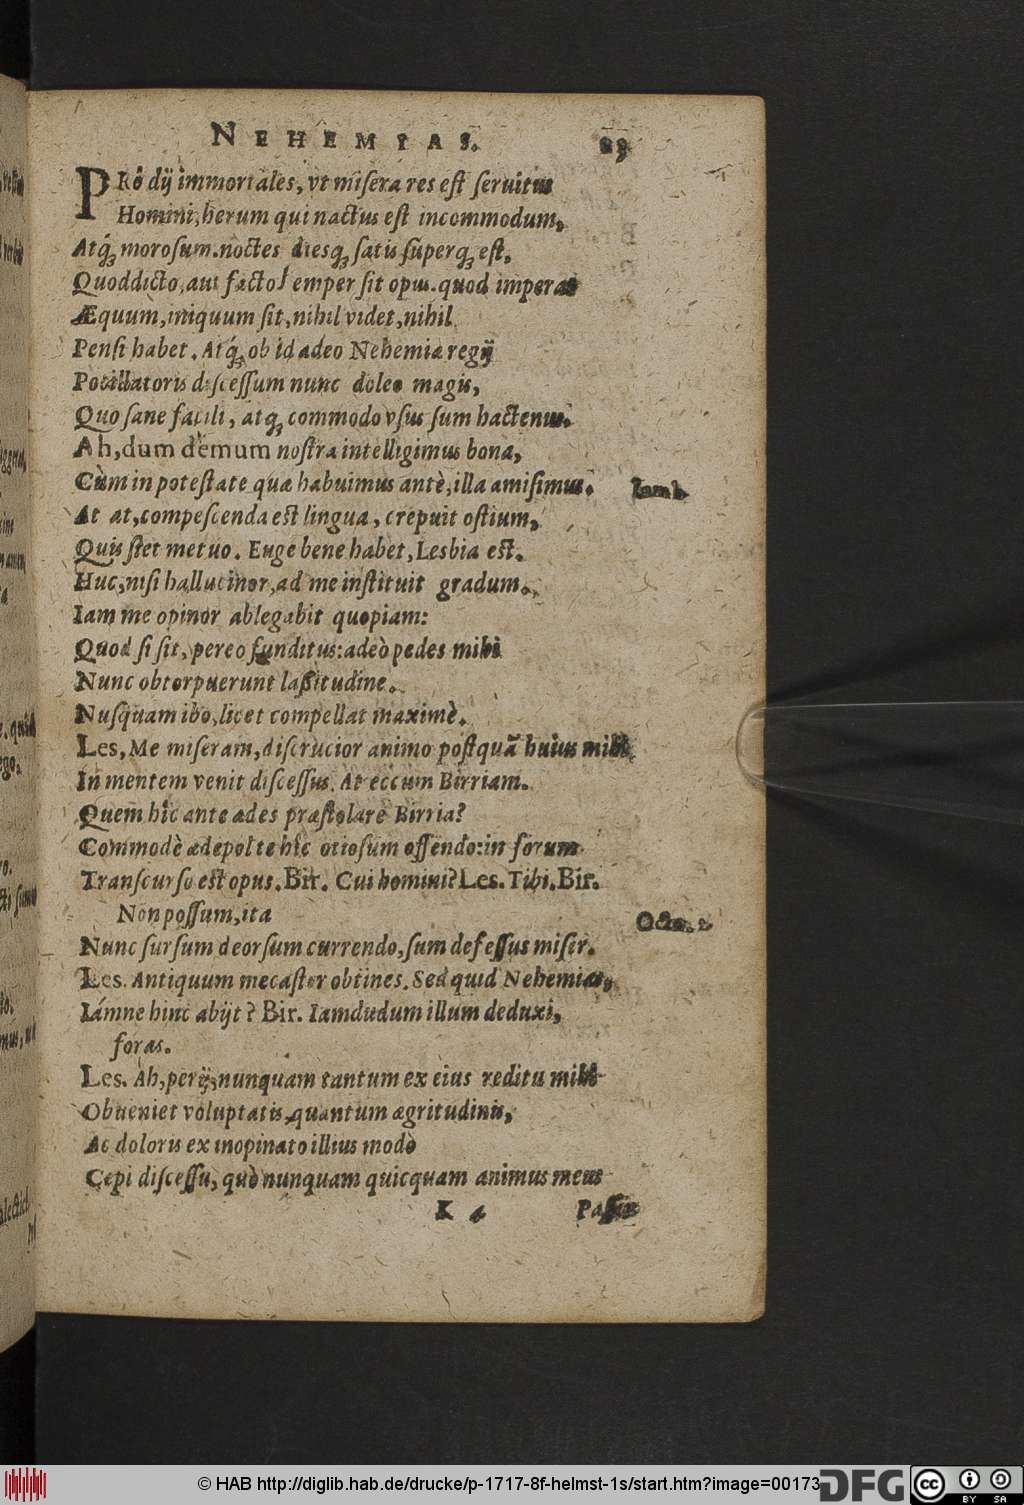 NEHEMIAS.
PRô dij immortales, vt misera res est seruitus
Homini, herum qui nactus est incommodum,
Atq́; morosum. noctes diesq; satis superq; est,
Quod dicto, aut facto semper sit opus. quod imperat
Æquum, iniquum sit, nihil videt, nihil
Pensi habet. Atq́; ob id adeo Nehemiæ regij
Pocillatoris discessum nunc doleo magis,
Quo sane facili, atq; commodo vsus sum hactenus.
Ah, dum demum nostra intelligimus bona,
Cùm in potestate quæ habuimus antè, illa amisimus. Iamb.
At at, compescenda est lingua, crepuit ostium,
Quis stet metuo. Euge bene habet, Lesbia est.
Huc, nisi hallucinor, ad me instituit gradum.
Iam me opinor ablegabit quopiam:
Quod si sit, pereo funditus: adeò pedes mihi
Nunc obtorpuerunt laßitudine.
Nusquam ibo, licet compellat maximè.
Les, Me miseram, discrucior animo postquã huius mihi
In mentem venit discessus. At eccum Birriam.
Quem hîc ante ædes præstolare Birria?
Commodè ædepol te hîc otiosum offendo: in forum
Transcurso est opus. Bir. Cui homini? Les. Tibi. Bir.
Non possum, ita
Octo. 2.
Nunc sursum deorsum currendo, sum defessus miser.
Les. Antiquum mecastor obtines. Sed quid Nehemias,
Iámne hinc abijt? Bir. Iamdudum illum deduxi,
foras.
Les. Ah, perij, nunquam tantum ex eius reditu mihi
Obueniet voluptatis, quantum ægritudinis,
Ac doloris ex inopinato illius modò
Cepi discessu, quò nunquam quicquam animus meus
K 4 Passus
© HAB http://diglib.hab.de/drucke/p-1717-8f-helmst-1s/start.htm?image=00173
DFG
cc BY SA